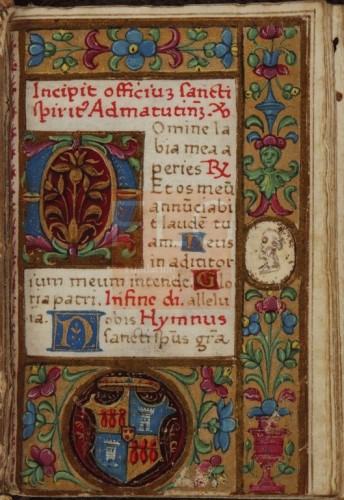 Incipit officiuz sancti
spirit⁹ Ad matutinʒ ℣
Domine la
bia mea a
peries ℟
Et os meū
annūciabi
t laudē tu
am. Deus
in adititor
ium meum intende. Glo
ria patri. In fine di. allelu
ia. Nobis Hymnus
sancti sp̄us grā